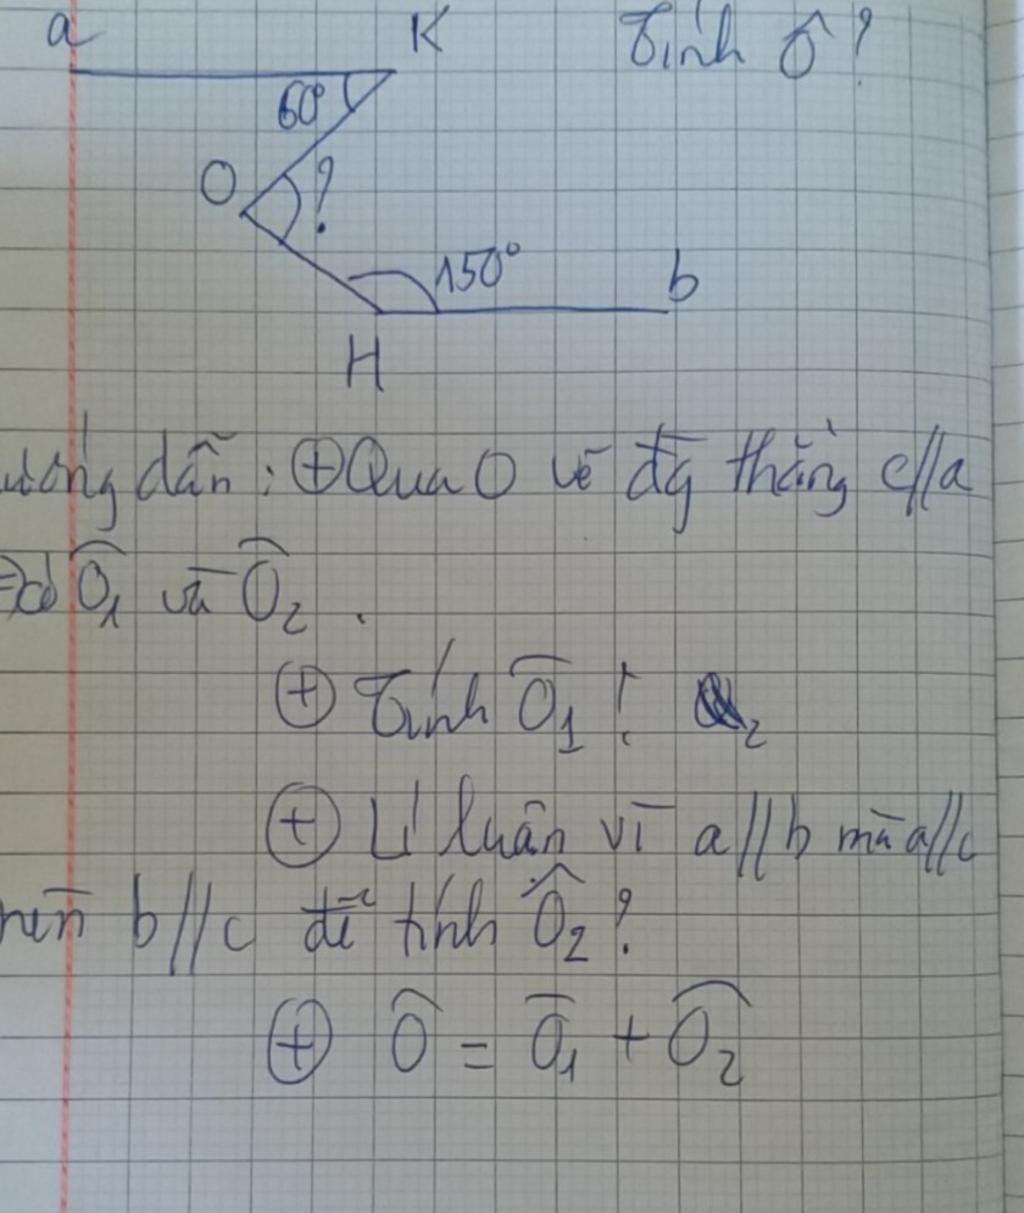 a K Tính Ô ?
60°
O ?
150° b
H
ướng dẫn : ⊕ Qua O vẽ đg thẳng c//a
⇒ có Ô1 và Ô2 .
⊕ Tính Ô1 ! 2
⊕ Lí luận vì a//b mà a//c
nên b//c để tính Ô2 ?
⊕ Ô = Ô1 + Ô2